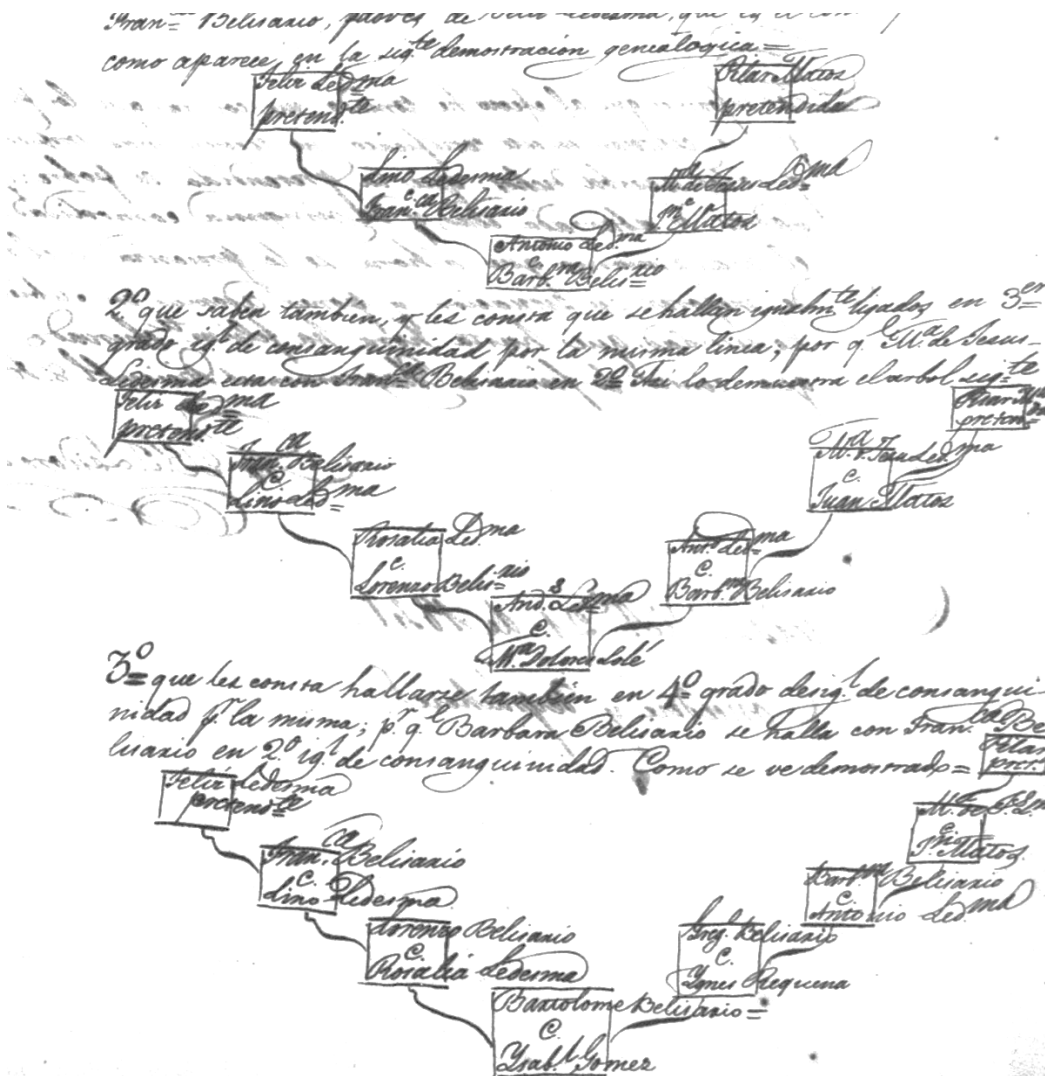 Fran.ca Belisario, padres de Felix Ledesma, que es el
como aparece en la sig.te demostración genealogica=
Felix Led.ma
pretend.te
Pilar Matos
pretendida
Lino Ledesma
c.
Fran.ca Belisario
M.a de Jesus Led.ma
c.
J.n Matos
Antonio Led.ma
C.
Barb.ra Belis.rio
2.o que saben tambien, y les consta que se hallan igualm.te ligados en 3.er
grado ig.l de consanguinidad por la misma linea; por q.e M.a de Jesus
Ledesma esta con Fran.ca Belisario en 2.o Asi lo demuestra el arbol sig.te
Felix Led.ma
pretend.te
Pilar
preten.
Fran.ca Belisario
C.
Lino Led.ma
M.a J. Jesus Led.ma
C.
Juan Matos
Rosalia Led.ma
C.
Lorenzo Belis.rio
Ant.o Led.ma
C.
Barb.ra Belisario
And.s Led.ma
C.
M.a Dolores Solé
3.o que les consta hallarse tambien en 4.o grado desig.l de consangui-
nidad p.r la misma; p.r q.e Barbara Belisario se halla con Fran.ca Be
lisario en 2.o ig.l de consanguinidad. Como se ve demostrado=
Pilar
pret.
Felix Ledesma
pretend.te
M.a de J.s
C.
J.n Matos
Fran.ca Belisario
C.
Lino Ledesma
Barb.ra Belisario
C.
Antonio Led.ma
Lorenzo Belisario
C.
Rosalia Ledesma
Greg.o Belisario
C.
Ygnes Requena
Bartolome Belisario=
C.
Ysab.l Gomez